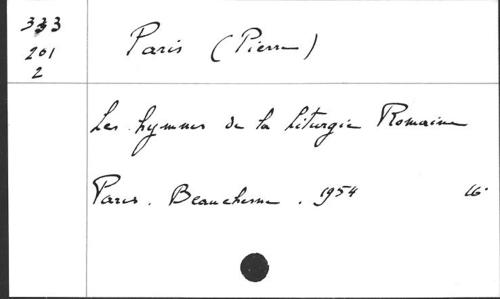 333
201
2
Paris (Pierre)
Les hymnes de la liturgie Romaine
Paris. Beauchesne. 1954 16°